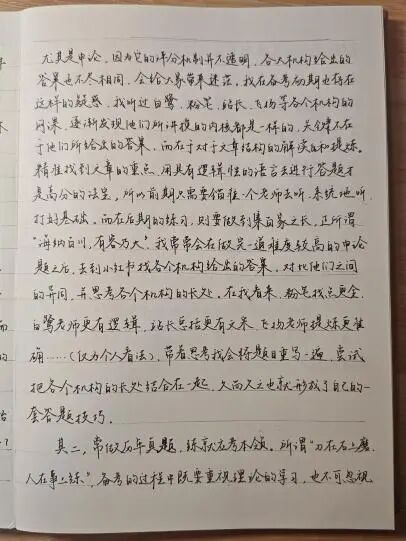 尤其是申论，因为它的评分机制并不透明，各大机构给出的
答案也不尽相同，会给大家带来迷茫。我在备考初期也存在
这样的疑惑，我听过白鹭、粉笔、站长、飞扬等各个机构的
网课，逐渐发现他们所讲授的内核都是一样的，关键不在
于他们所给出的答案，而在于对于文章结构的解读和提炼。
精准找到文章的重点，用具有逻辑性的语言去进行答题才
是高分的法宝，所以前期只需要值准一个老师去听，系统地听，
打好基础。而在后期的练习，则要做到集百家之长，正所谓
“海纳百川，有容乃大”，我常常会在做完一道难度较高的申论
题之后，去到小红书找各个机构给出的答案，对比他们之间
的异同，并思考各个机构的长处。在我看来，粉笔找点更全，
白鹭老师更有逻辑，站长总结更有文采，飞扬老师提炼更准
确……（仅为个人看法），带着思考我会将题目重写一遍，尝试
把各个机构的长处结合在一起，久而久之也就形成了自己的一
套答题技巧。
其二，常做历年真题，练就应考本领。所谓“刀在石上磨，
人在事上练”，备考的过程中既要重视理论的学习，也不可忽视